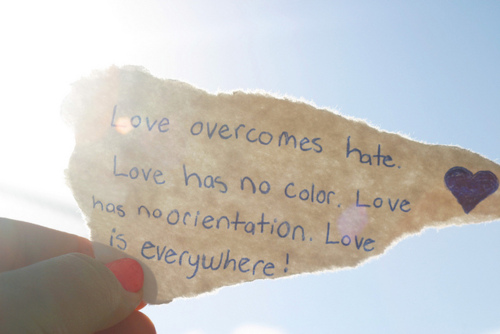 Love overcomes hate.
Love has no color. Love
has no orientation. Love
is everywhere!